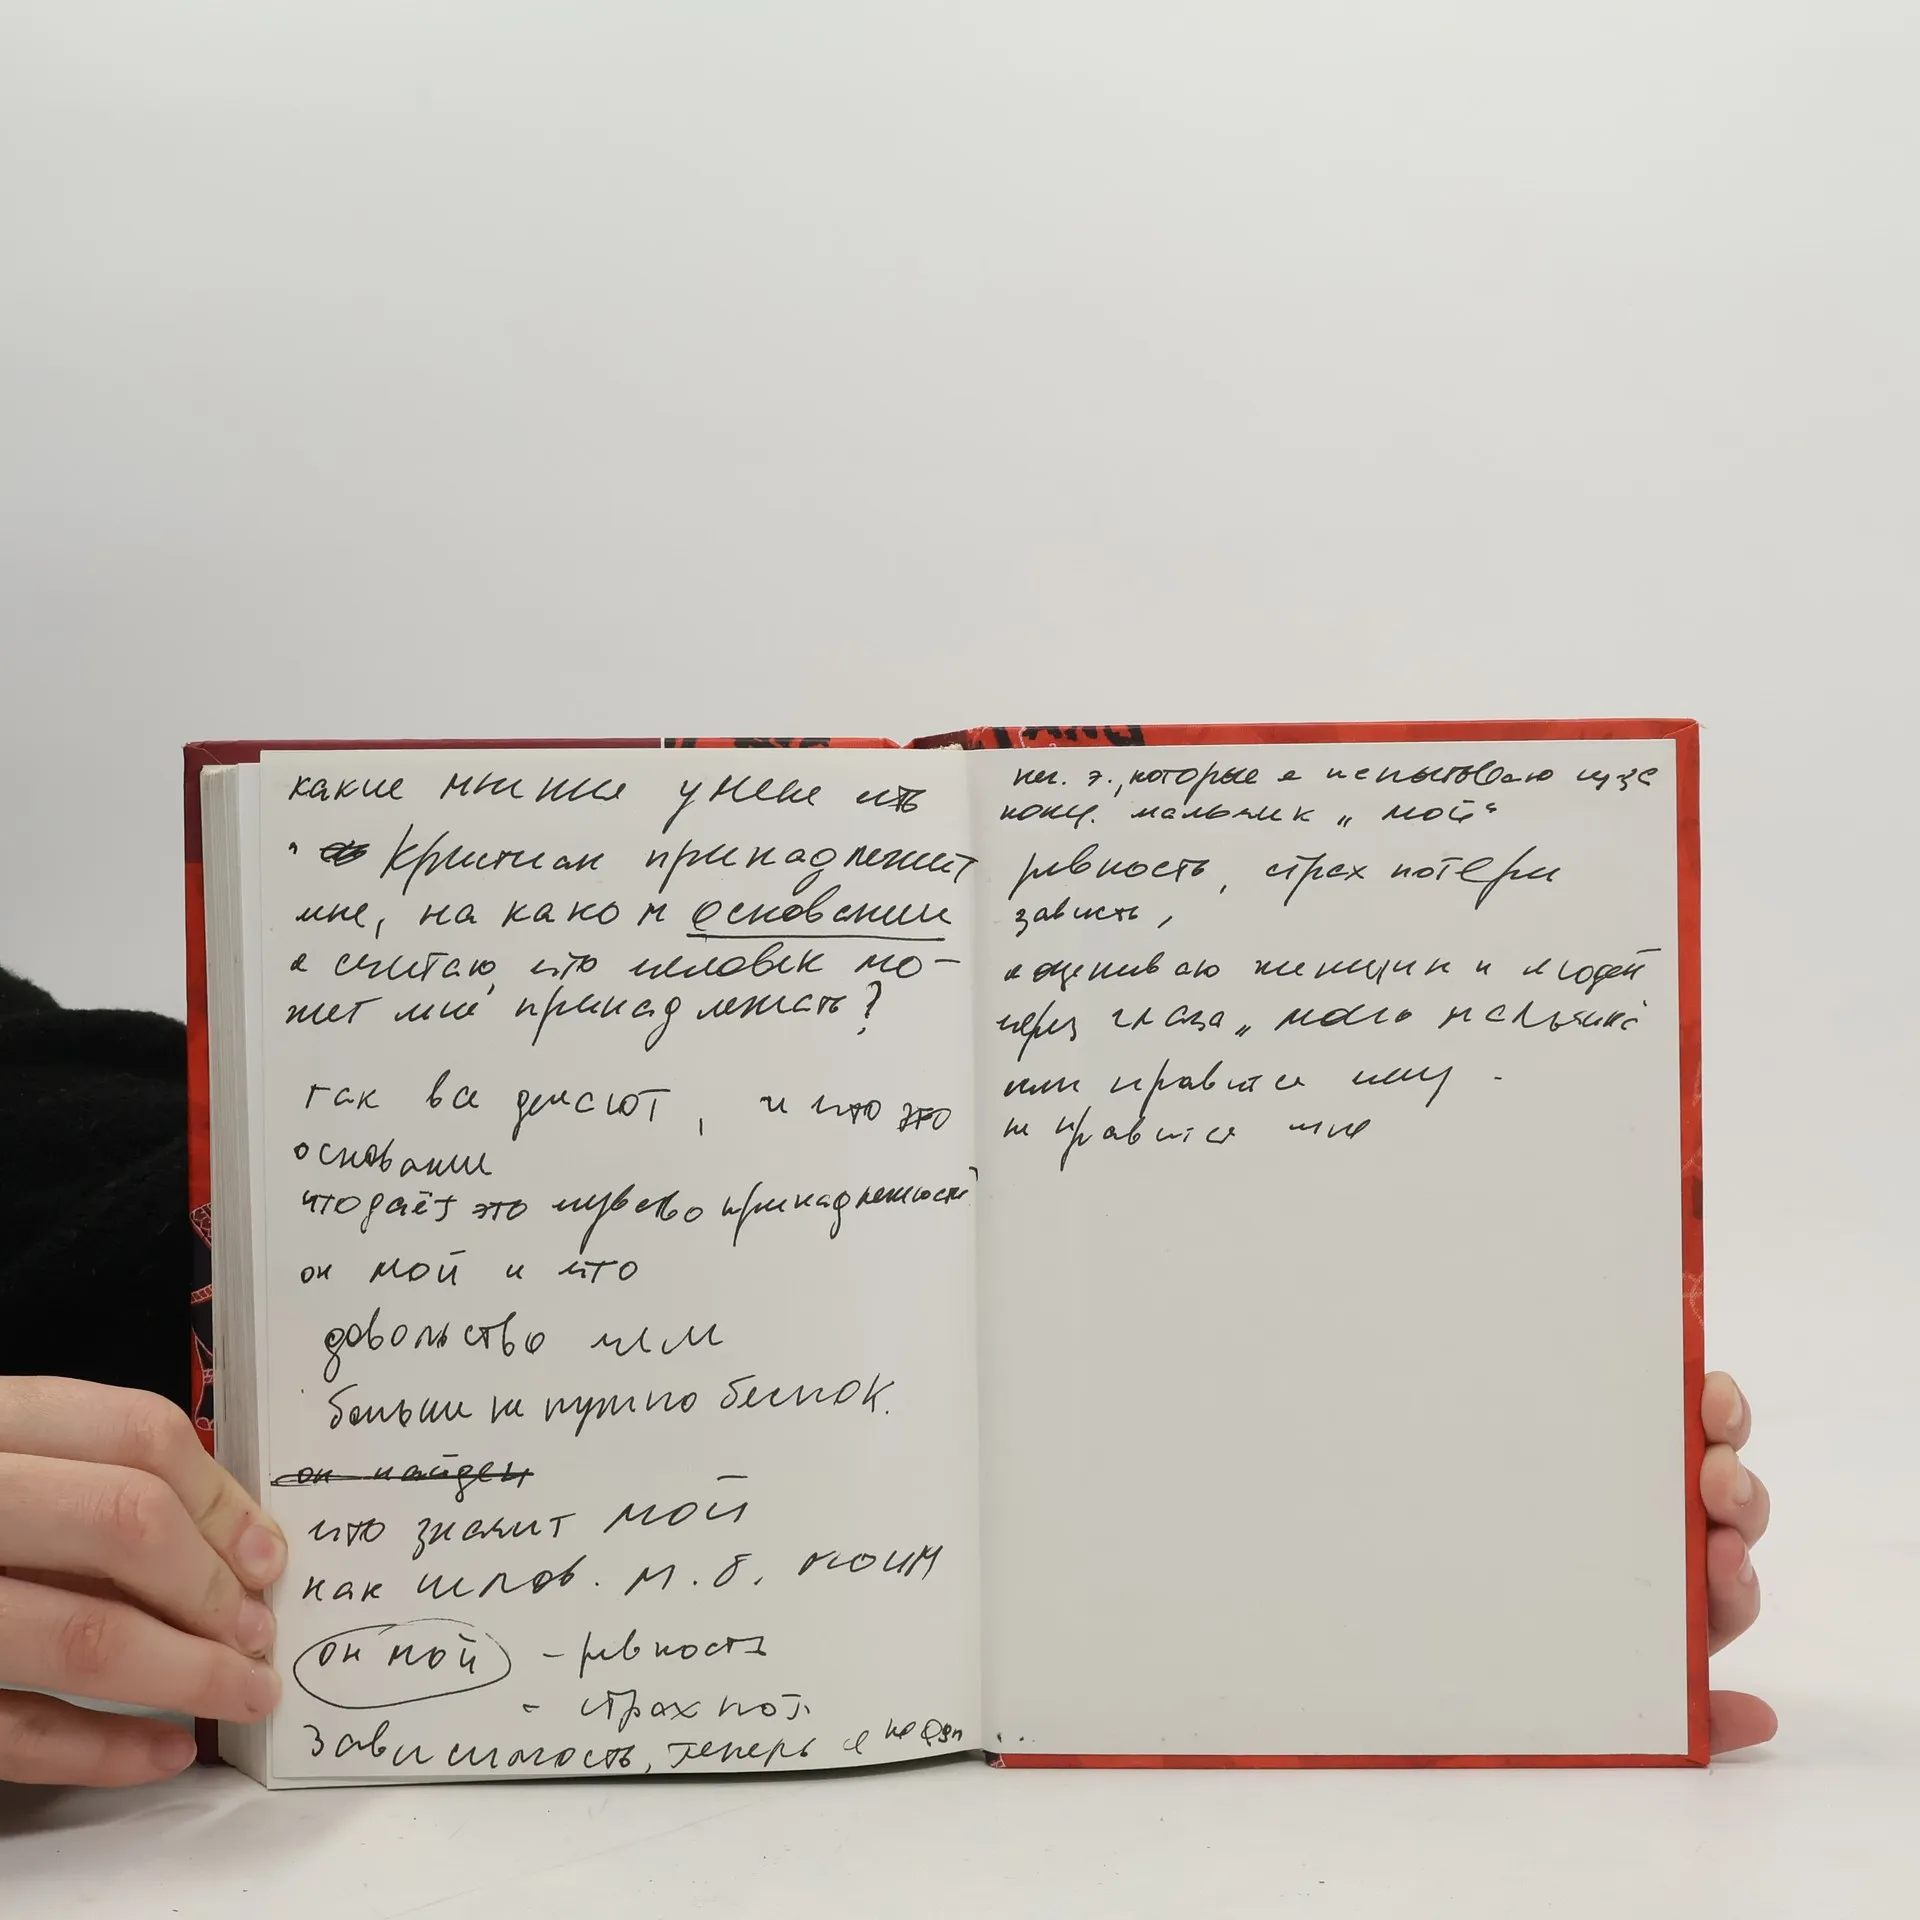 какие мысли у меня есть
"Кристиан принадлежит
мне, на каком основании
я считаю, что человек мо-
жет мне принадлежать?
так все делают, и что это
основание
что даёт это чувство принадлежности?
он мой и что
довольство им
больше не нужно беспок.
он найден
что значит мой
как челов. м.б. моим
он мой - ревность
- страх пот.
Зависимость, теперь я не один
нег. э., которые я испытываю из-за
конц. мальчик „мой“
ревность, страх потери
зависть,
я оцениваю женщин и людей
через глаза „моего мальчика“
или нравится ему -
не нравится мне